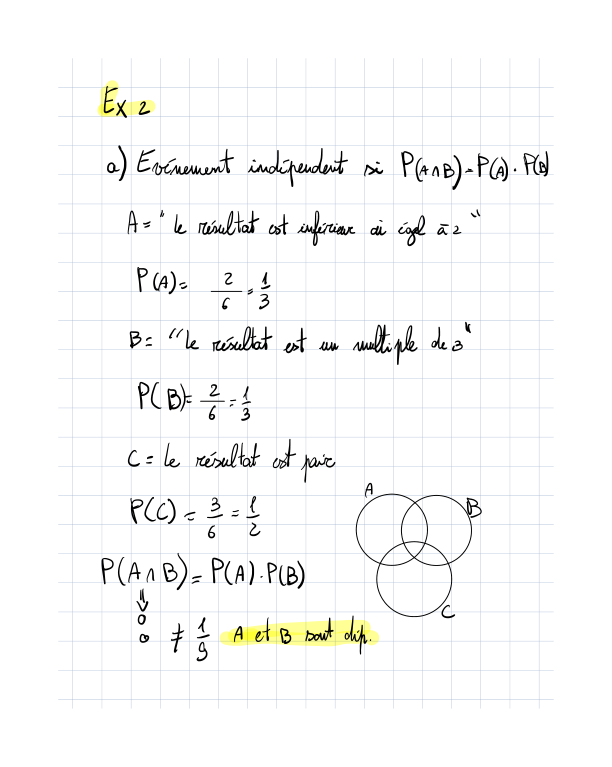 Ex 2
a) Evénement indépendent si P(A∩B) = P(A) · P(B)
A = " le résultat est inférieur ou égal à 2 "
P(A) = 2/6 = 1/3
B = " le résultat est un multiple de 3 "
P(B) = 2/6 = 1/3
C = le résultat est pair
P(C) = 3/6 = 1/2
A
B
C
P(A∩B) = P(A) · P(B)
⇓
0
0 ≠ 1/9 A et B sont dép.